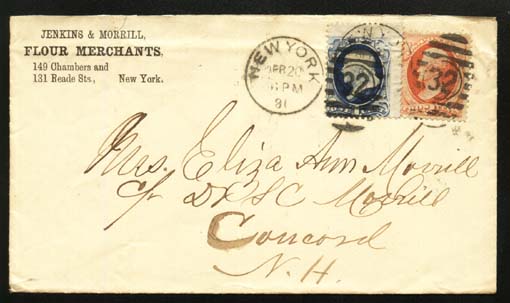 JENKINS & MORRILL,
FLOUR MERCHANTS,
149 Chambers and
131 Reade Sts, New York.
NEW YORK
6 PM
81
32
32
Mrs. Eliza Ann Morrill
c/f Dr S C Morrill
Concord
N. H.